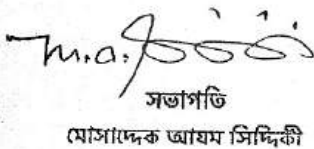 সভাপতি
মোসাদ্দেক আযম সিদ্দিকী